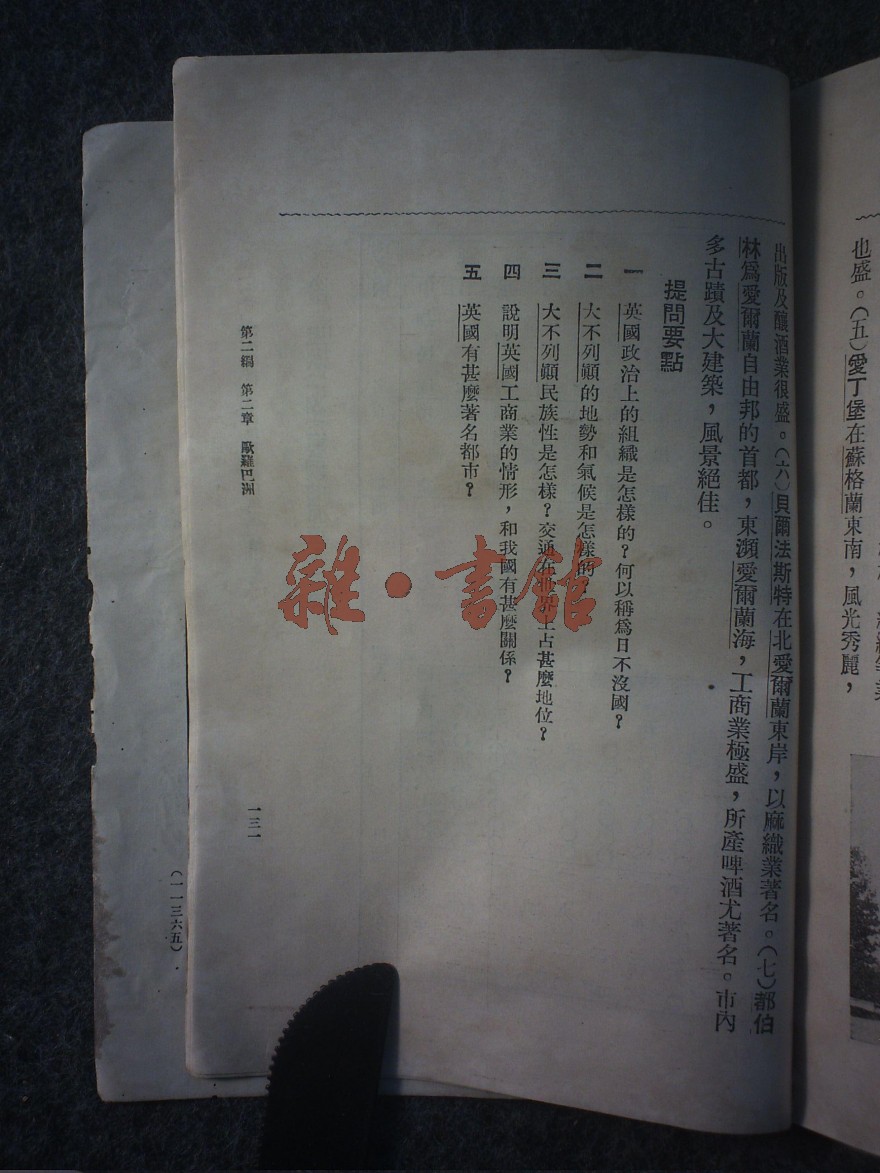 也盛。(五)愛丁堡在蘇格蘭東南，風光秀麗，
出版及釀酒業很盛。(六)貝爾法斯特在北愛爾蘭東岸，以麻織業著名。(七)都伯
林爲愛爾蘭自由邦的首都，東瀕愛爾蘭海，工商業極盛，所產啤酒尤著名。市內
多古蹟及大建築，風景絕佳。
提問要點
一 英國政治上的組織是怎樣的？何以稱爲日不沒國？
二 大不列顚的地勢和氣候是怎樣的
三 大不列顚民族性是怎樣？交通在世界上占甚麼地位？
四 說明英國工商業的情形，和我國有甚麼關係？
五 英國有甚麼著名都市？
第二編 第二章 歐羅巴洲
一三一
(一一三六五)
雜·書館